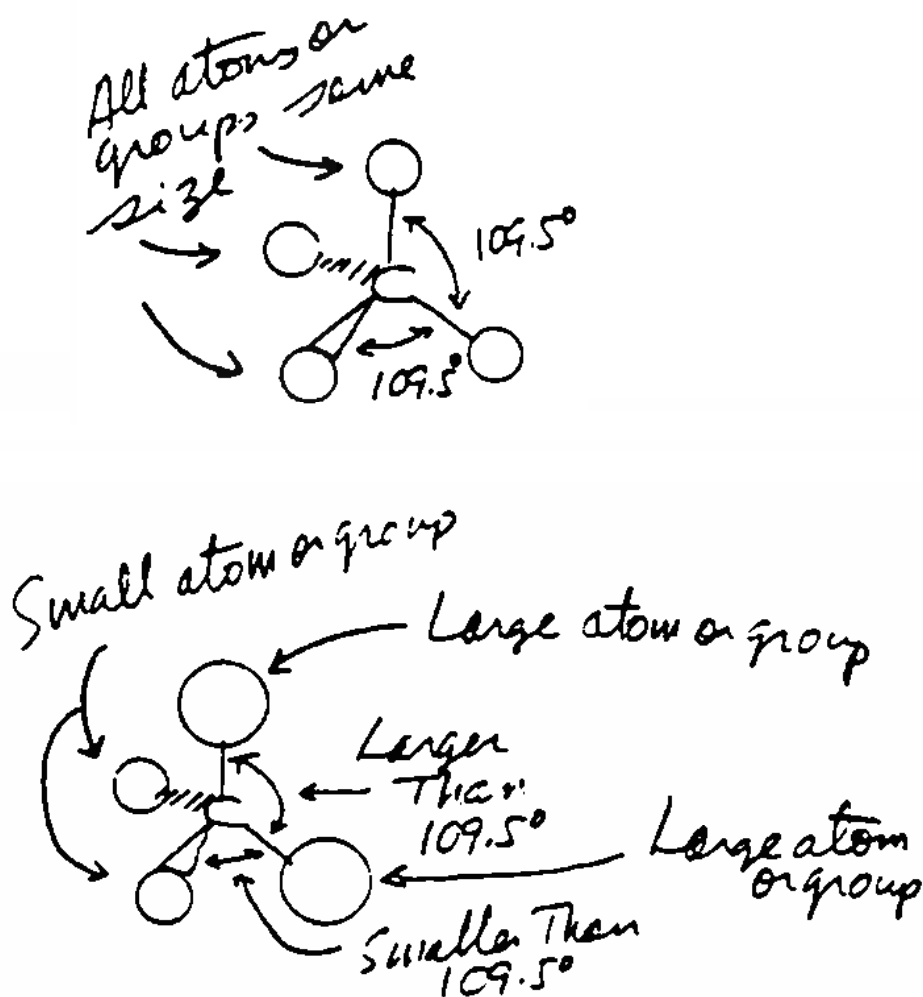 All atoms or
groups same
size
109.5°
C
109.5°
Small atom or group
Large atom or group
Larger
Than
109.5°
C
Large atom
or group
Smaller Than
109.5°